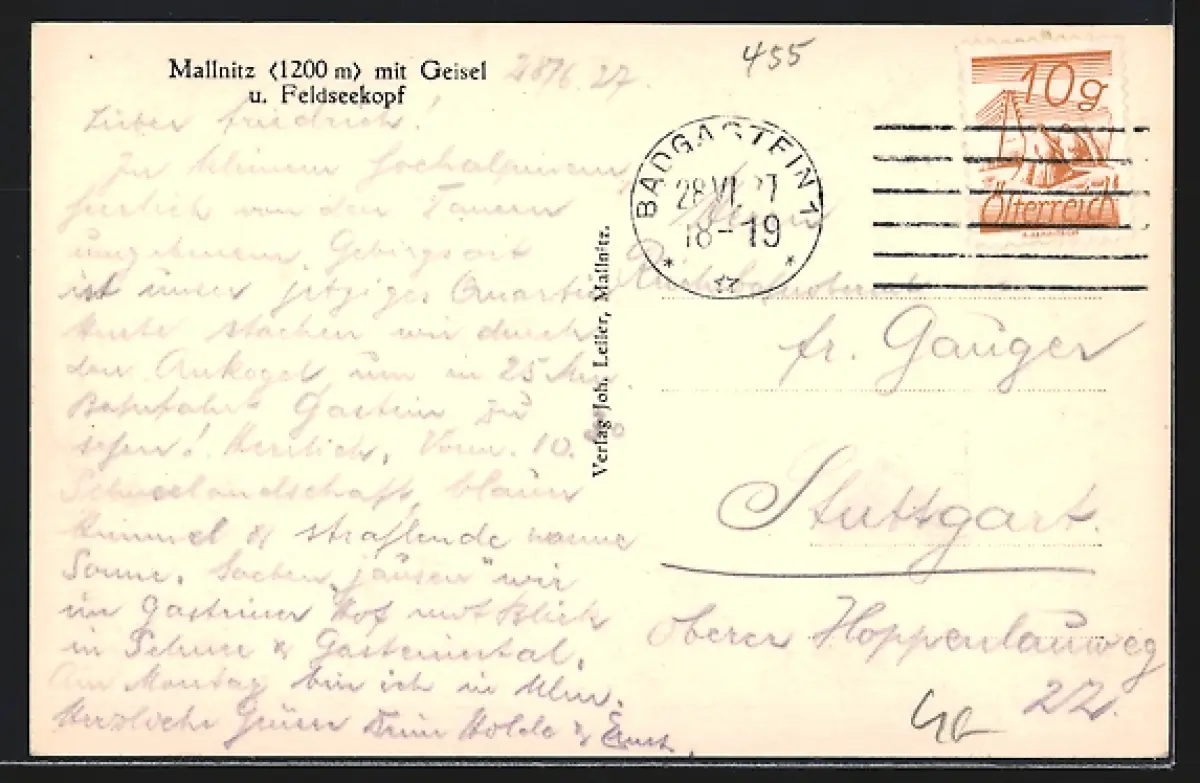 Mallnitz (1200 m) mit Geisel
u. Feldseekopf
28/6.27.
455
Lieber Friedrich!
In kleinem hochalpinem,
herrlich von den Tauern
umgebenem Gebirgsort
ist unser jetziges Quartier
Heute stachen wir durch
den Ankogel, um in 25 Min.
Bahnfahrt Gastein zu
sehen! Herrlich. Vorm. 10.
Schneelandschaft, blauer
Himmel & strahlende warme
Sonne. Soeben „jausen" wir
im Gasteiner Hof mit Blick
in Schnee & Gasteinertal.
Am Montag bin ich in Ulm.
Herzliche Grüsse Deine Holde & Ernst.
Verlag Joh. Leiler, Mallnitz.
BADGASTEIN 1
28 VI 27
18-19
10g
Österreich
Herrn
Reichsbahnoberrat
Fr. Gauger
Stuttgart.
oberer Hoppenlauweg
22.